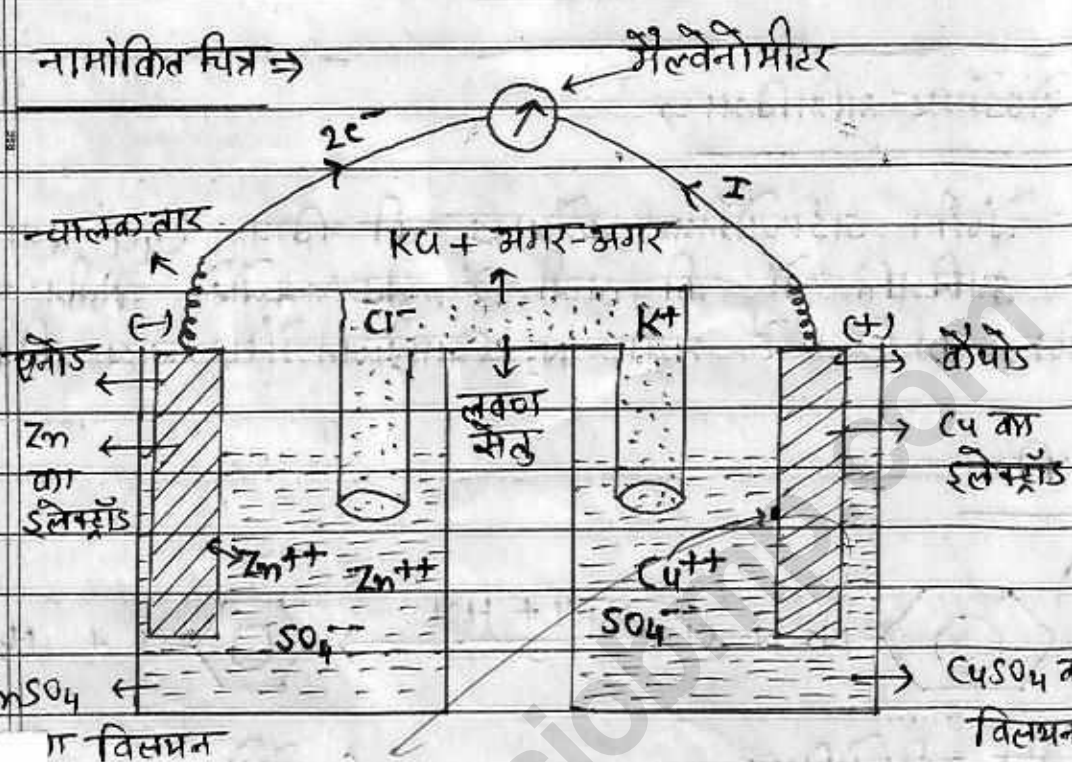 नामांकित चित्र ⇒
गैल्वेनोमीटर
2e⁻
I
चालक तार
KCl + अगर-अगर
(-)
Cl⁻
K⁺
(+)
एनोड
कैथोड
लवण
सेतु
Zn
का
इलेक्ट्रॉड
Cu का
इलेक्ट्रॉड
Zn⁺⁺
Zn⁺⁺
Cu⁺⁺
SO₄⁻⁻
SO₄⁻⁻
nSO₄
CuSO₄
विलयन
विलयन